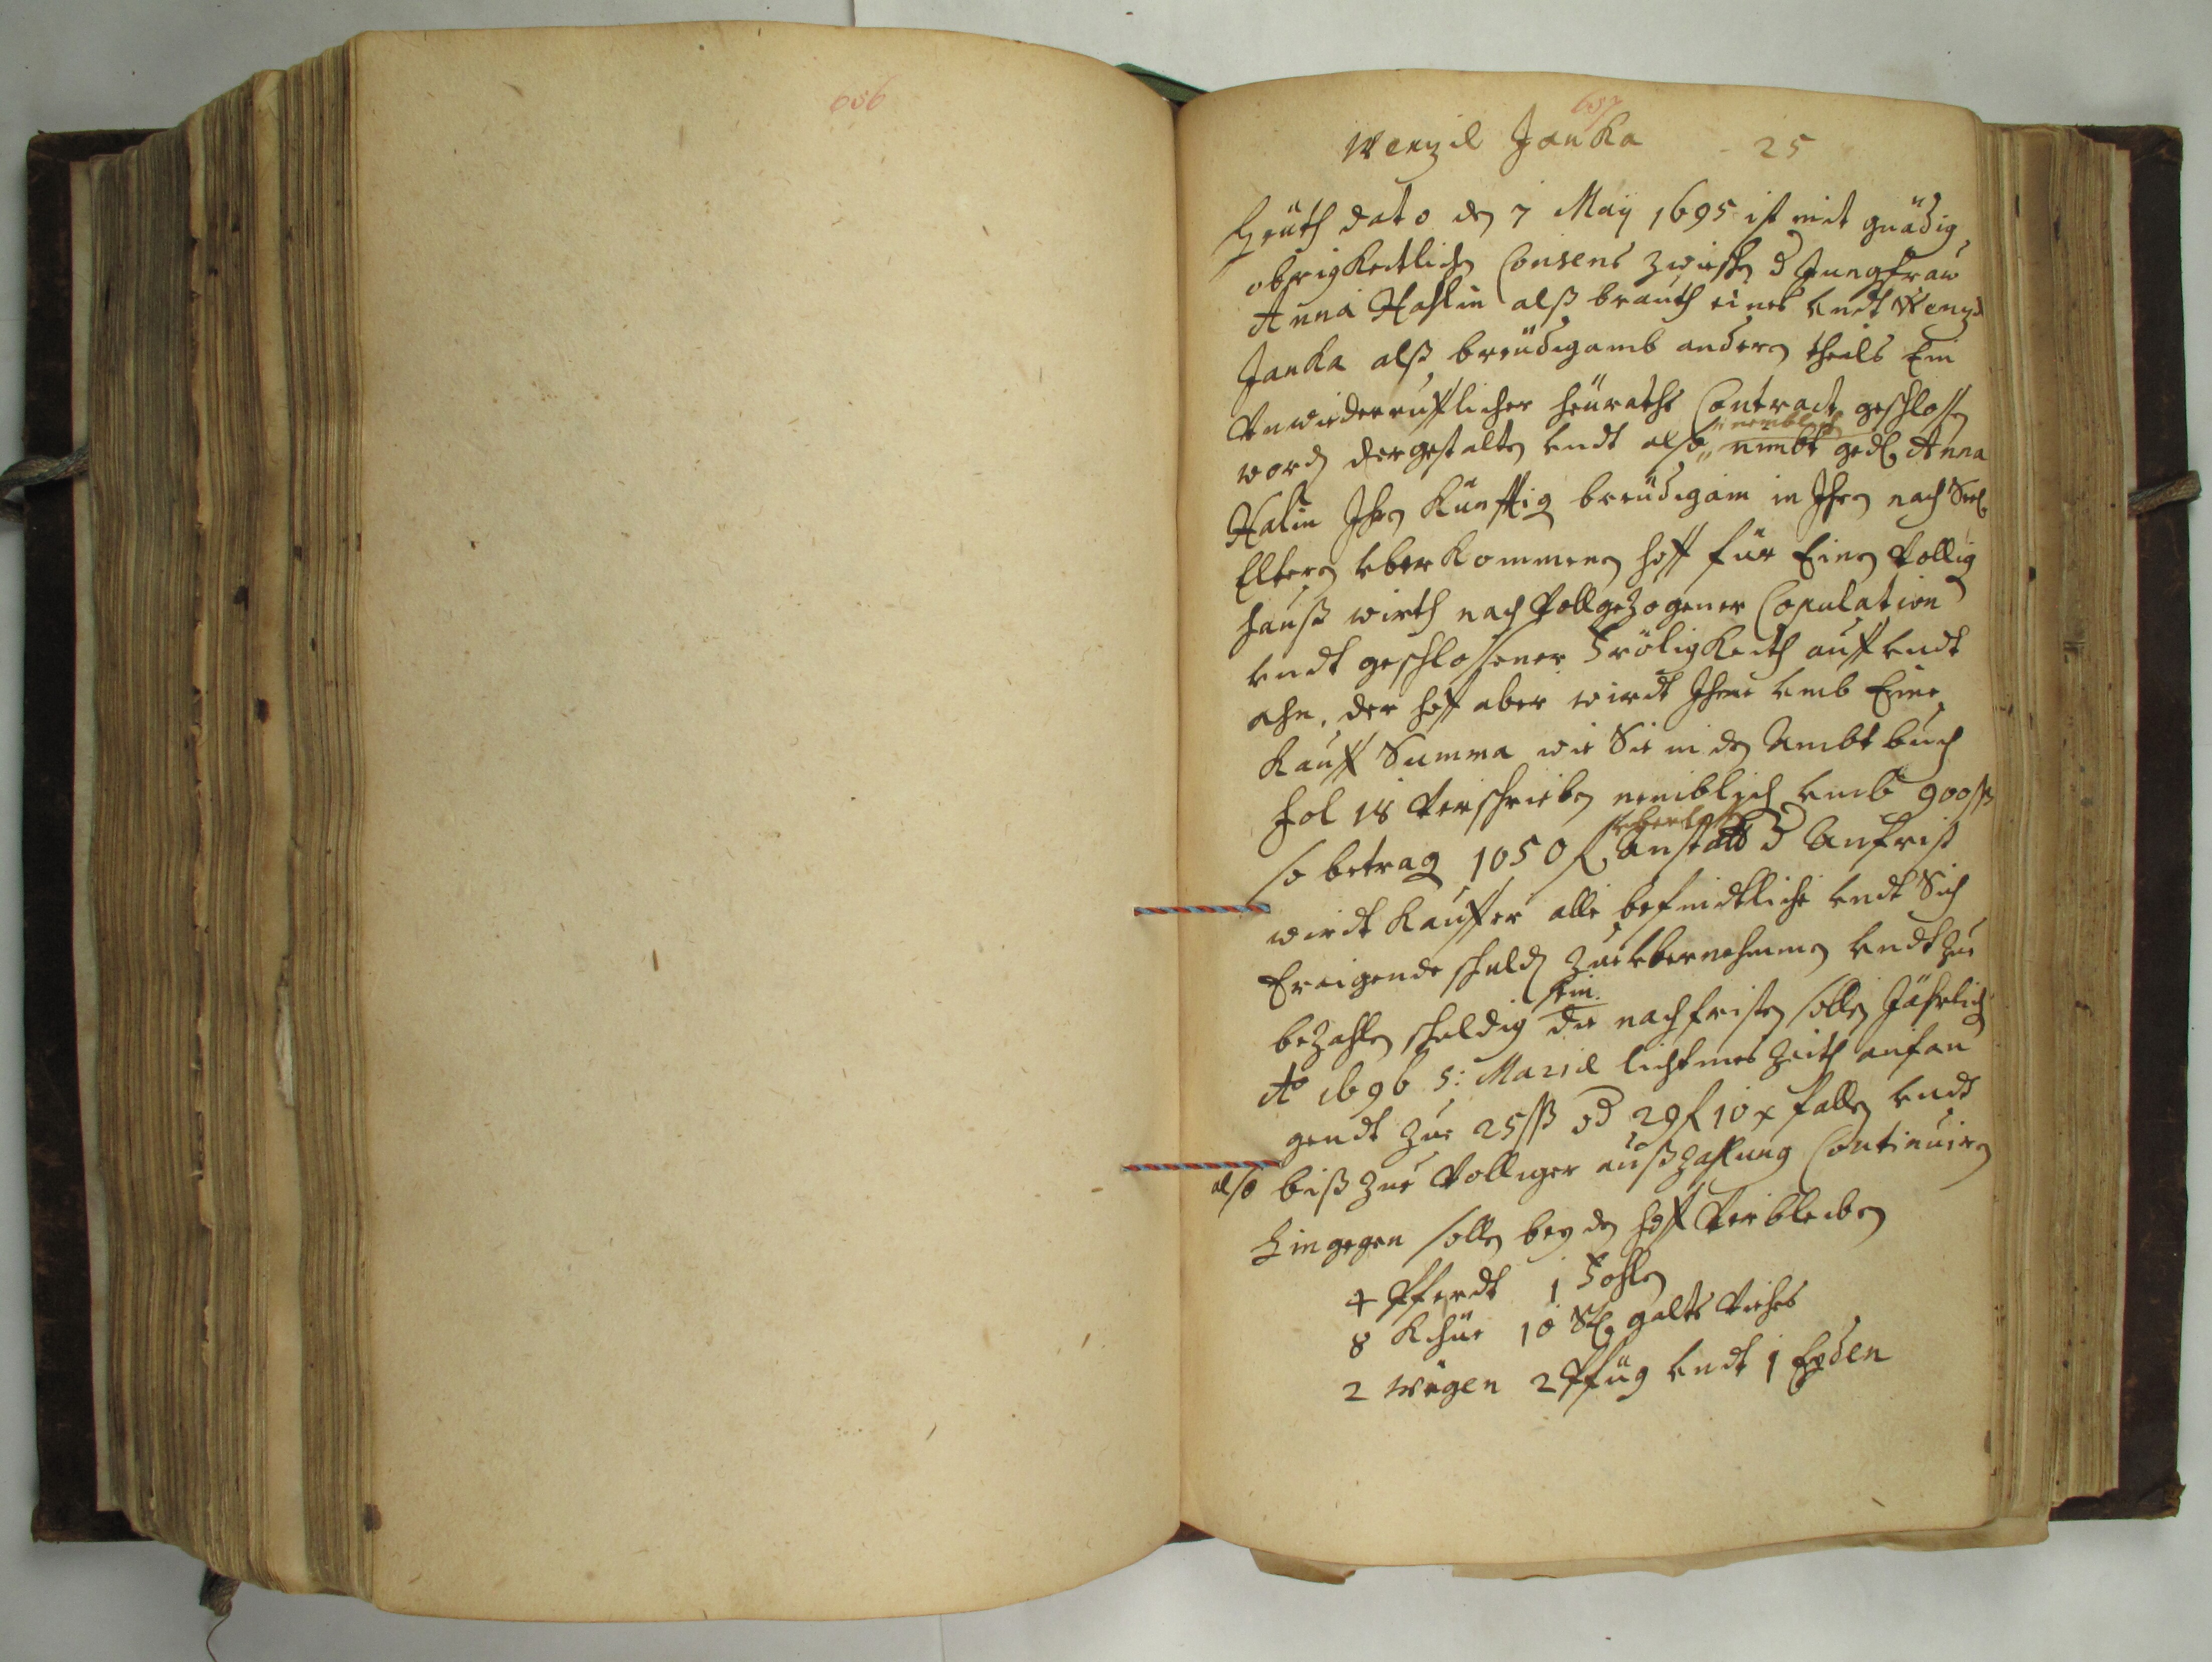 656
657
Wenzl JanKa 25
Heüth dato den 7 Maÿ 1695 ist mit gnädig
obrigKeitlichen Consens zwischen d Jungfraw
Anna Haklin alß brauth eines undt Wenzl
JanKa alß breüdigamb anderen theils Ein
Unwiderrufflicher heüraths Contract geschlossen
worden dergestalten undt also, nimbt gedl Anna
nemblich
Halin Ihren Künfftig breüdigam in Ihren nach Seel
Eltern überKommenen hoff für Einen Vollig
hauß wirth nach Vollgezogener Copulation
undt geschlossener FröligKeith auff undt
ahn, der hoff aber wirdt Ihme umb Eine
Kauff Summa wie Sie in den Ambt buch
fol 18 Verschrieben nemblich umb 900 ß
so betrag 1050 f Anstatt d Anfrist
überlassen
wirdt Kauffer alle befindtliche undt Sich
Ereigende schulden zue übernehmen undt zue
bezahlen schuldig die nachfristen sollen Jährlich
sein.
Aō 1696 S: Mariæ lichtmes Zeith anfan
gendt zue 25 ß od 29 f 10 x fallen undt
also biß zue Volliger außzahlung Continuiren
Hingegen sollen bey den hoff Verbleiben
4 Pferdt 1 Fohlen
8 Kühe 10 St galts Viehes
2 Wägen 2 Pflüg undt 1 Egden